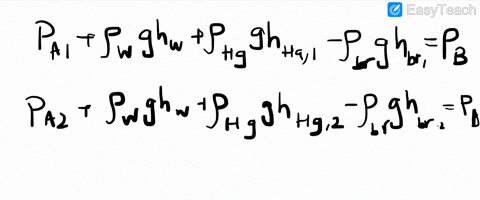 EasyTeach
P_A1 + ρ_w g h_w + ρ_Hg g h_Hg,1 − ρ_br g h_br,1 = P_B
P_A2 + ρ_w g h_w + ρ_Hg g h_Hg,2 − ρ_br g h_br,2 = P_B